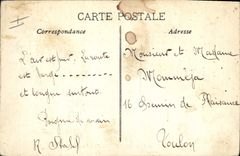 CARTE POSTALE
Correspondance
Adresse
L'air est pur. La route
est large
et longue surtout.
Poignée de main
R.
Monsieur et Madame
Mommeja
16 Chemin de Plaisance
Toulon